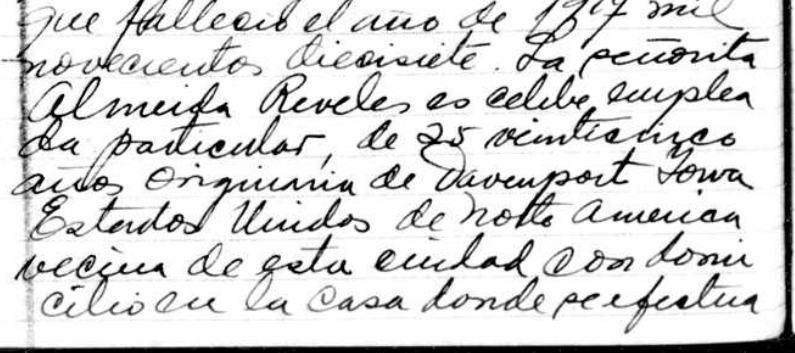 que fallecio el año de 1917 mil
novecientos diecisiete. La señorita
Almeida Reveles es celibe, emplea
da particular, de 25 veinticinco
años originaria de Davenport Iowa
Estados Unidos de Norte America
vecina de esta ciudad con domi
cilio en la casa donde se efectua